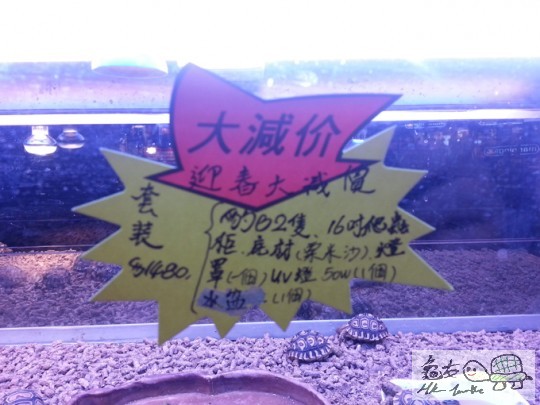 大減价
迎春大减價
套装
$1480.
豹B2隻、16吋爬
柜.底材(粟米沙).燈
罩(一個)UV燈50W(1個)
水 (1個)